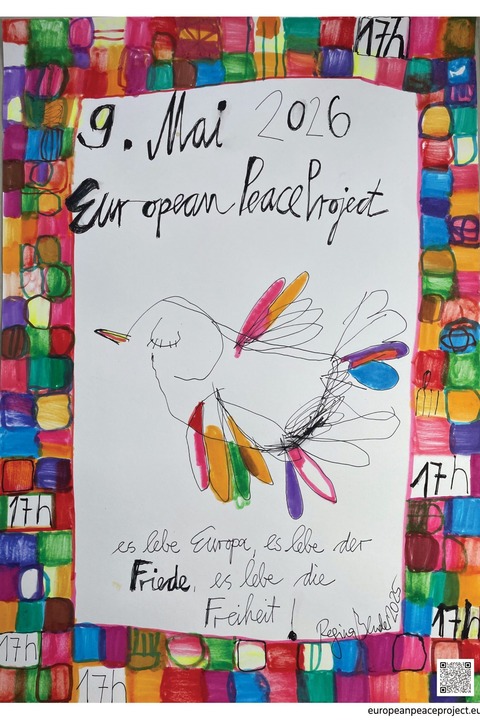 17h
9. Mai 2026
European PeaceProject
17h
17h
es lebe Europa, es lebe der
Friede, es lebe die
Freiheit!
2025
17h
17h
17h
europeanpeaceproject.eu